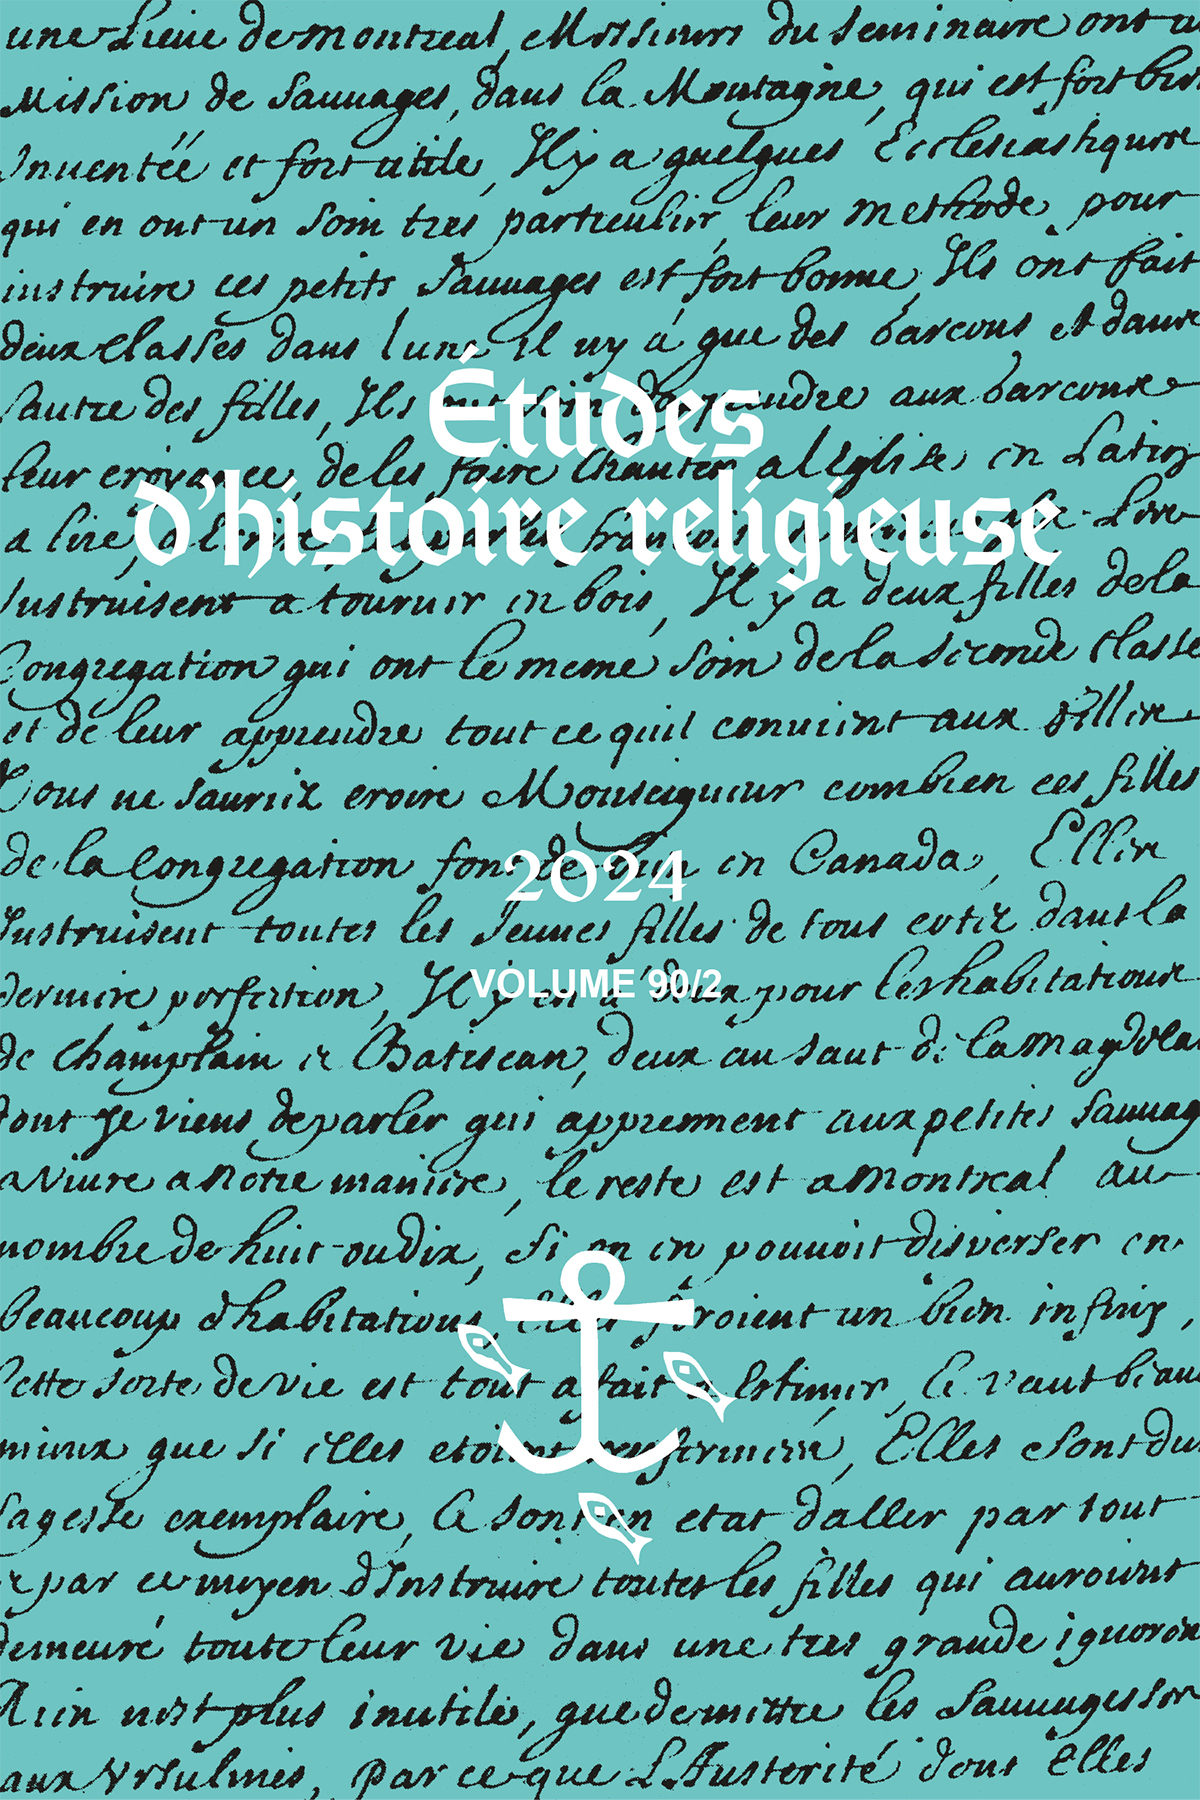 une Lieue de montreal, Messieurs du Seminaire ont u
Mission de Sauuages, dans la Montagne, qui est fort bien
Inuentéé et fort utile, Il y a quelques Ecclesiastiques
qui en ont un soin tres particulier, leur methode pour
instruire ces petits Sauuages est fort bonne, Ils ont fait
deux classes dans lune il ny a que des Garcons et dans
lautre des filles, Ils ont soin dapprendre aux Garcons
Études
leur croyance, de les faire Chanter a lEglise en Latin
d'histoire religieuse
a lire, a Ecrire, a parler francois
Instruisent a tourner en bois, Il y a deux filles de la
Congregation qui ont le meme soin de la seconde classe
et de leur apprendre tout ce quil conuient aux filles
Vous ne sauriez croire Monseigneur combien ces filles
de la Congregation font de bien en Canada, Elles
2024
Instruisent toutes les Jeunes filles de tous cotez dans la
VOLUME 90/2
derniere perfection, Il y en a deux pour les habitations
de Champlain et Batiscan, deux au Saut de la Magdela
dont Je viens de parler qui apprennent aux petites Sauuag
a viure a notre maniere, le reste est a Montreal au
nombre de huit ou dix, Si on en pouuoit disperser en
beaucoup dhabitations, Elles feroient un bien infiny,
Cette sorte de vie est tout a fait a Estimer, Ce vaut beau
mieux que si elles etoient renfermées, Elles sont dun
sagesse exemplaire, Ce sont en etat daller par tout
et par ce moyen dInstruire toutes les filles qui auroient
demeuré toute leur vie dans une tres grande ignoran
Rien nest plus inutile, que de mettre les Sauuages
aux Vrsulines, par ce que LAusterité dont Elles